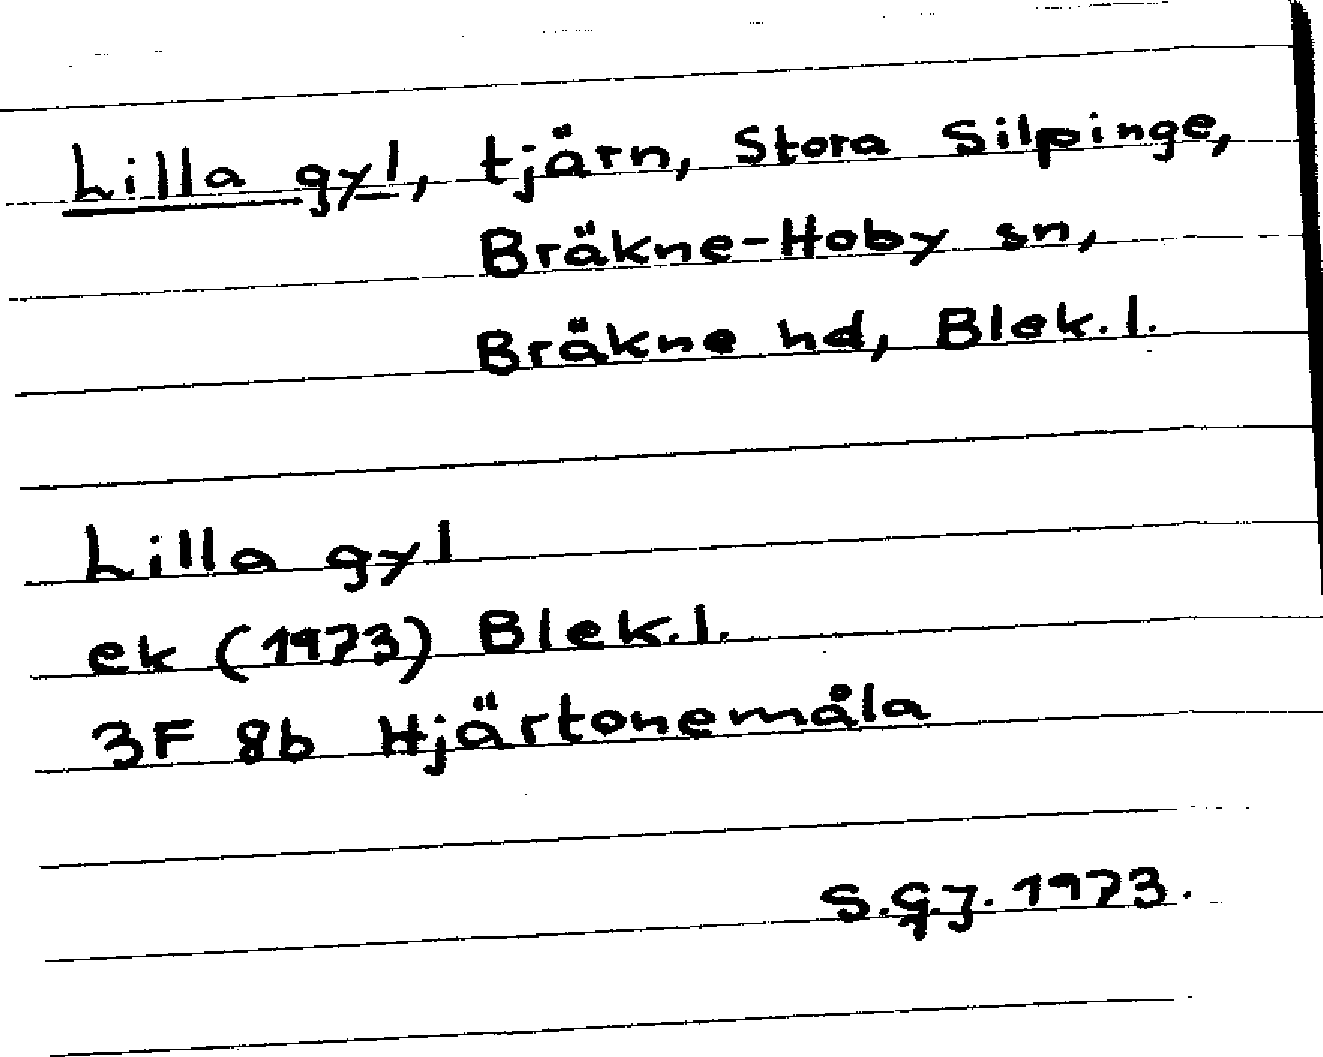 Lilla gyl, tjärn, Stora Silpinge,
Bräkne-Hoby sn,
Bräkne hd, Blek.l.
Lilla gyl
ek (1973) Blek.l.
3F 8b Hjärtonemåla
S.G.J. 1973.